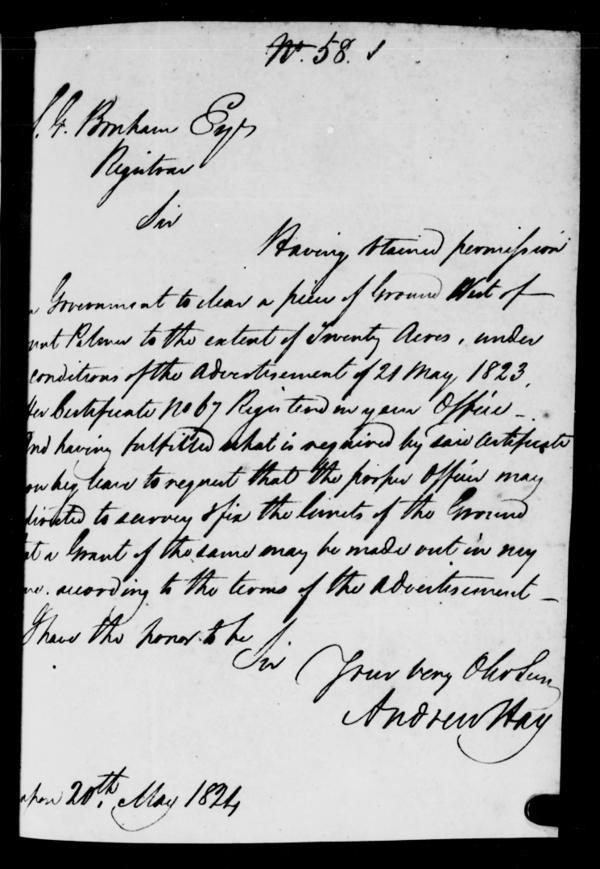 No. 58.
S. G. Bonham Esqr
Registrar
Sir
Having obtained permission
Government to clear a piece of Ground West of
Mount Palmer to the extent of Twenty Acres, under
conditions of the Advertisement of 21 May, 1823,
Certificate No 67 Registered in your Office _
And having fulfilled what is required by said Certificate
now beg leave to request that the proper Officer may
directed to survey & fix the limits of the Ground
that a Grant of the same may be made out in my
according to the terms of the Advertisement _
I have the honor to be
Sir
Your very Obt Serv
Andrew Hay
20th May 1824